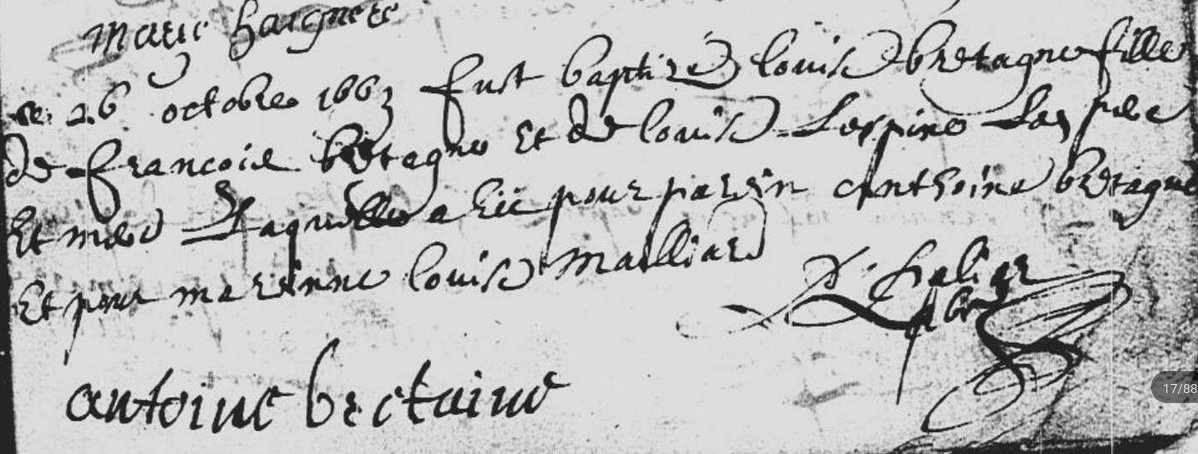 marie haignere
ce 26 octobre 1663 fust baptizé louise bretagne fille
de francois bretagne Et de louise Lespine Les pere
Et mere Laquelle a eü pour parein anthoine bretagne
Et pour marinne louise mailliard
pbr
antoine brctaine
17/88